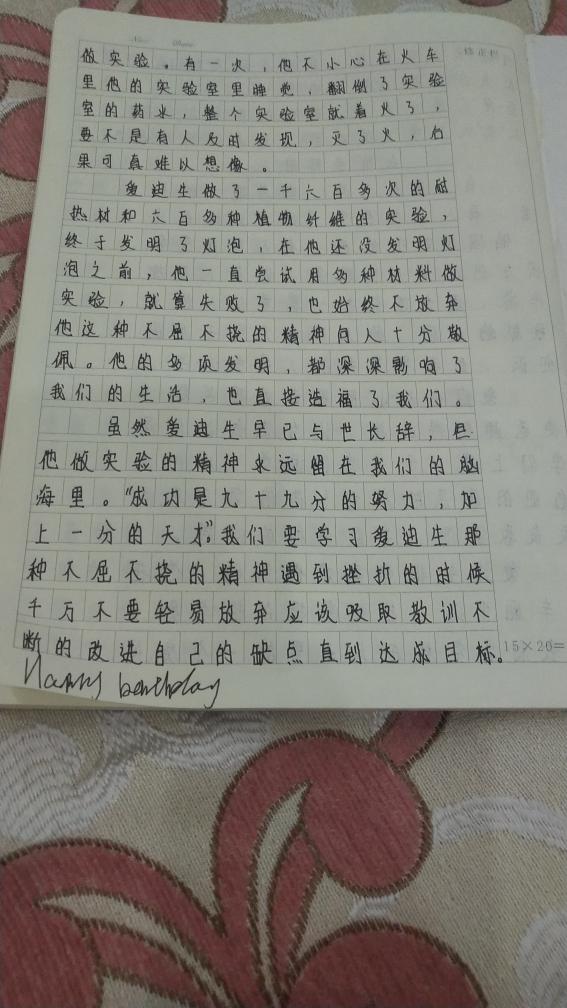 做实验。有一次，他不小心在火车
里他的实验室里睡觉，翻倒了实验
室的药水，整个实验室就着火了，
要不是有人及时发现，灭了火，后
果可真难以想像。
爱迪生做了一千六百多次的耐
热材和六百多种植物纤维的实验，
终于发明了灯泡，在他还没发明灯
泡之前，他一直尝试用多种材料做
实验，就算失败了，也始终不放弃
他这种不屈不挠的精神间人十分敬
佩。他的多项发明，都深深影响了
我们的生活，也直接造福了我们。
虽然爱迪生早已与世长辞，但
他做实验的精神永远留在我们的脑
海里。“成功是九十九分的努力，加
上一分的天才”。我们要学习爱迪生那
种不屈不挠的精神遇到挫折的时候
千万不要轻易放弃应该吸取教训不
断的改进自己的缺点直到达成目标。
15×20=